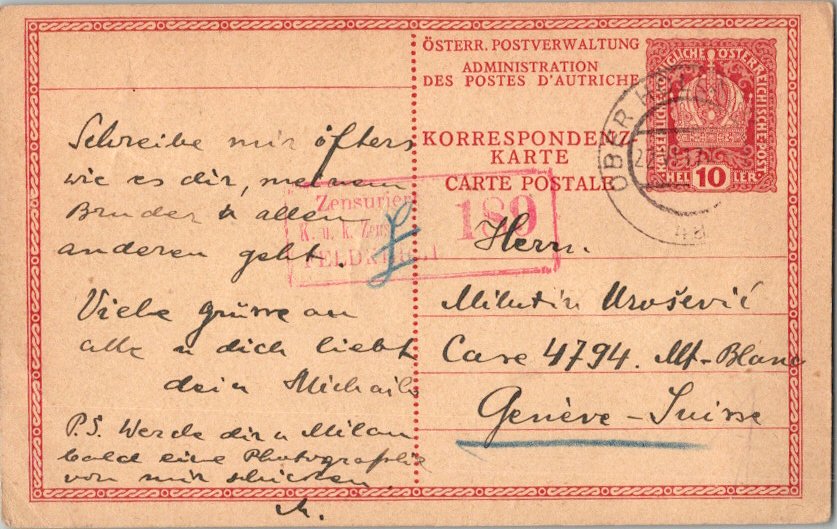 ÖSTERR. POSTVERWALTUNG
ADMINISTRATION
DES POSTES D'AUTRICHE
KORRESPONDENZ-
KARTE
CARTE POSTALE
KAISERLICHE KÖNIGLICHE ÖSTERREICHISCHE POST
HELLER
10
OBER H
22
4a
Zensuriert
K. u. k. Zens
FELDKIRCH
189
Schreibe mir öfters
wie es dir, meinem
Bruder u allen
anderen geht.
Viele Grüsse an
alle u dich liebt
dein Michailo
P.S. Werde dir u Milan
bald eine Photographie
von mir schicken.
M.
Herrn.
Milutin Urošević
Case 4794. Mt-Blanc
Genève-Suisse